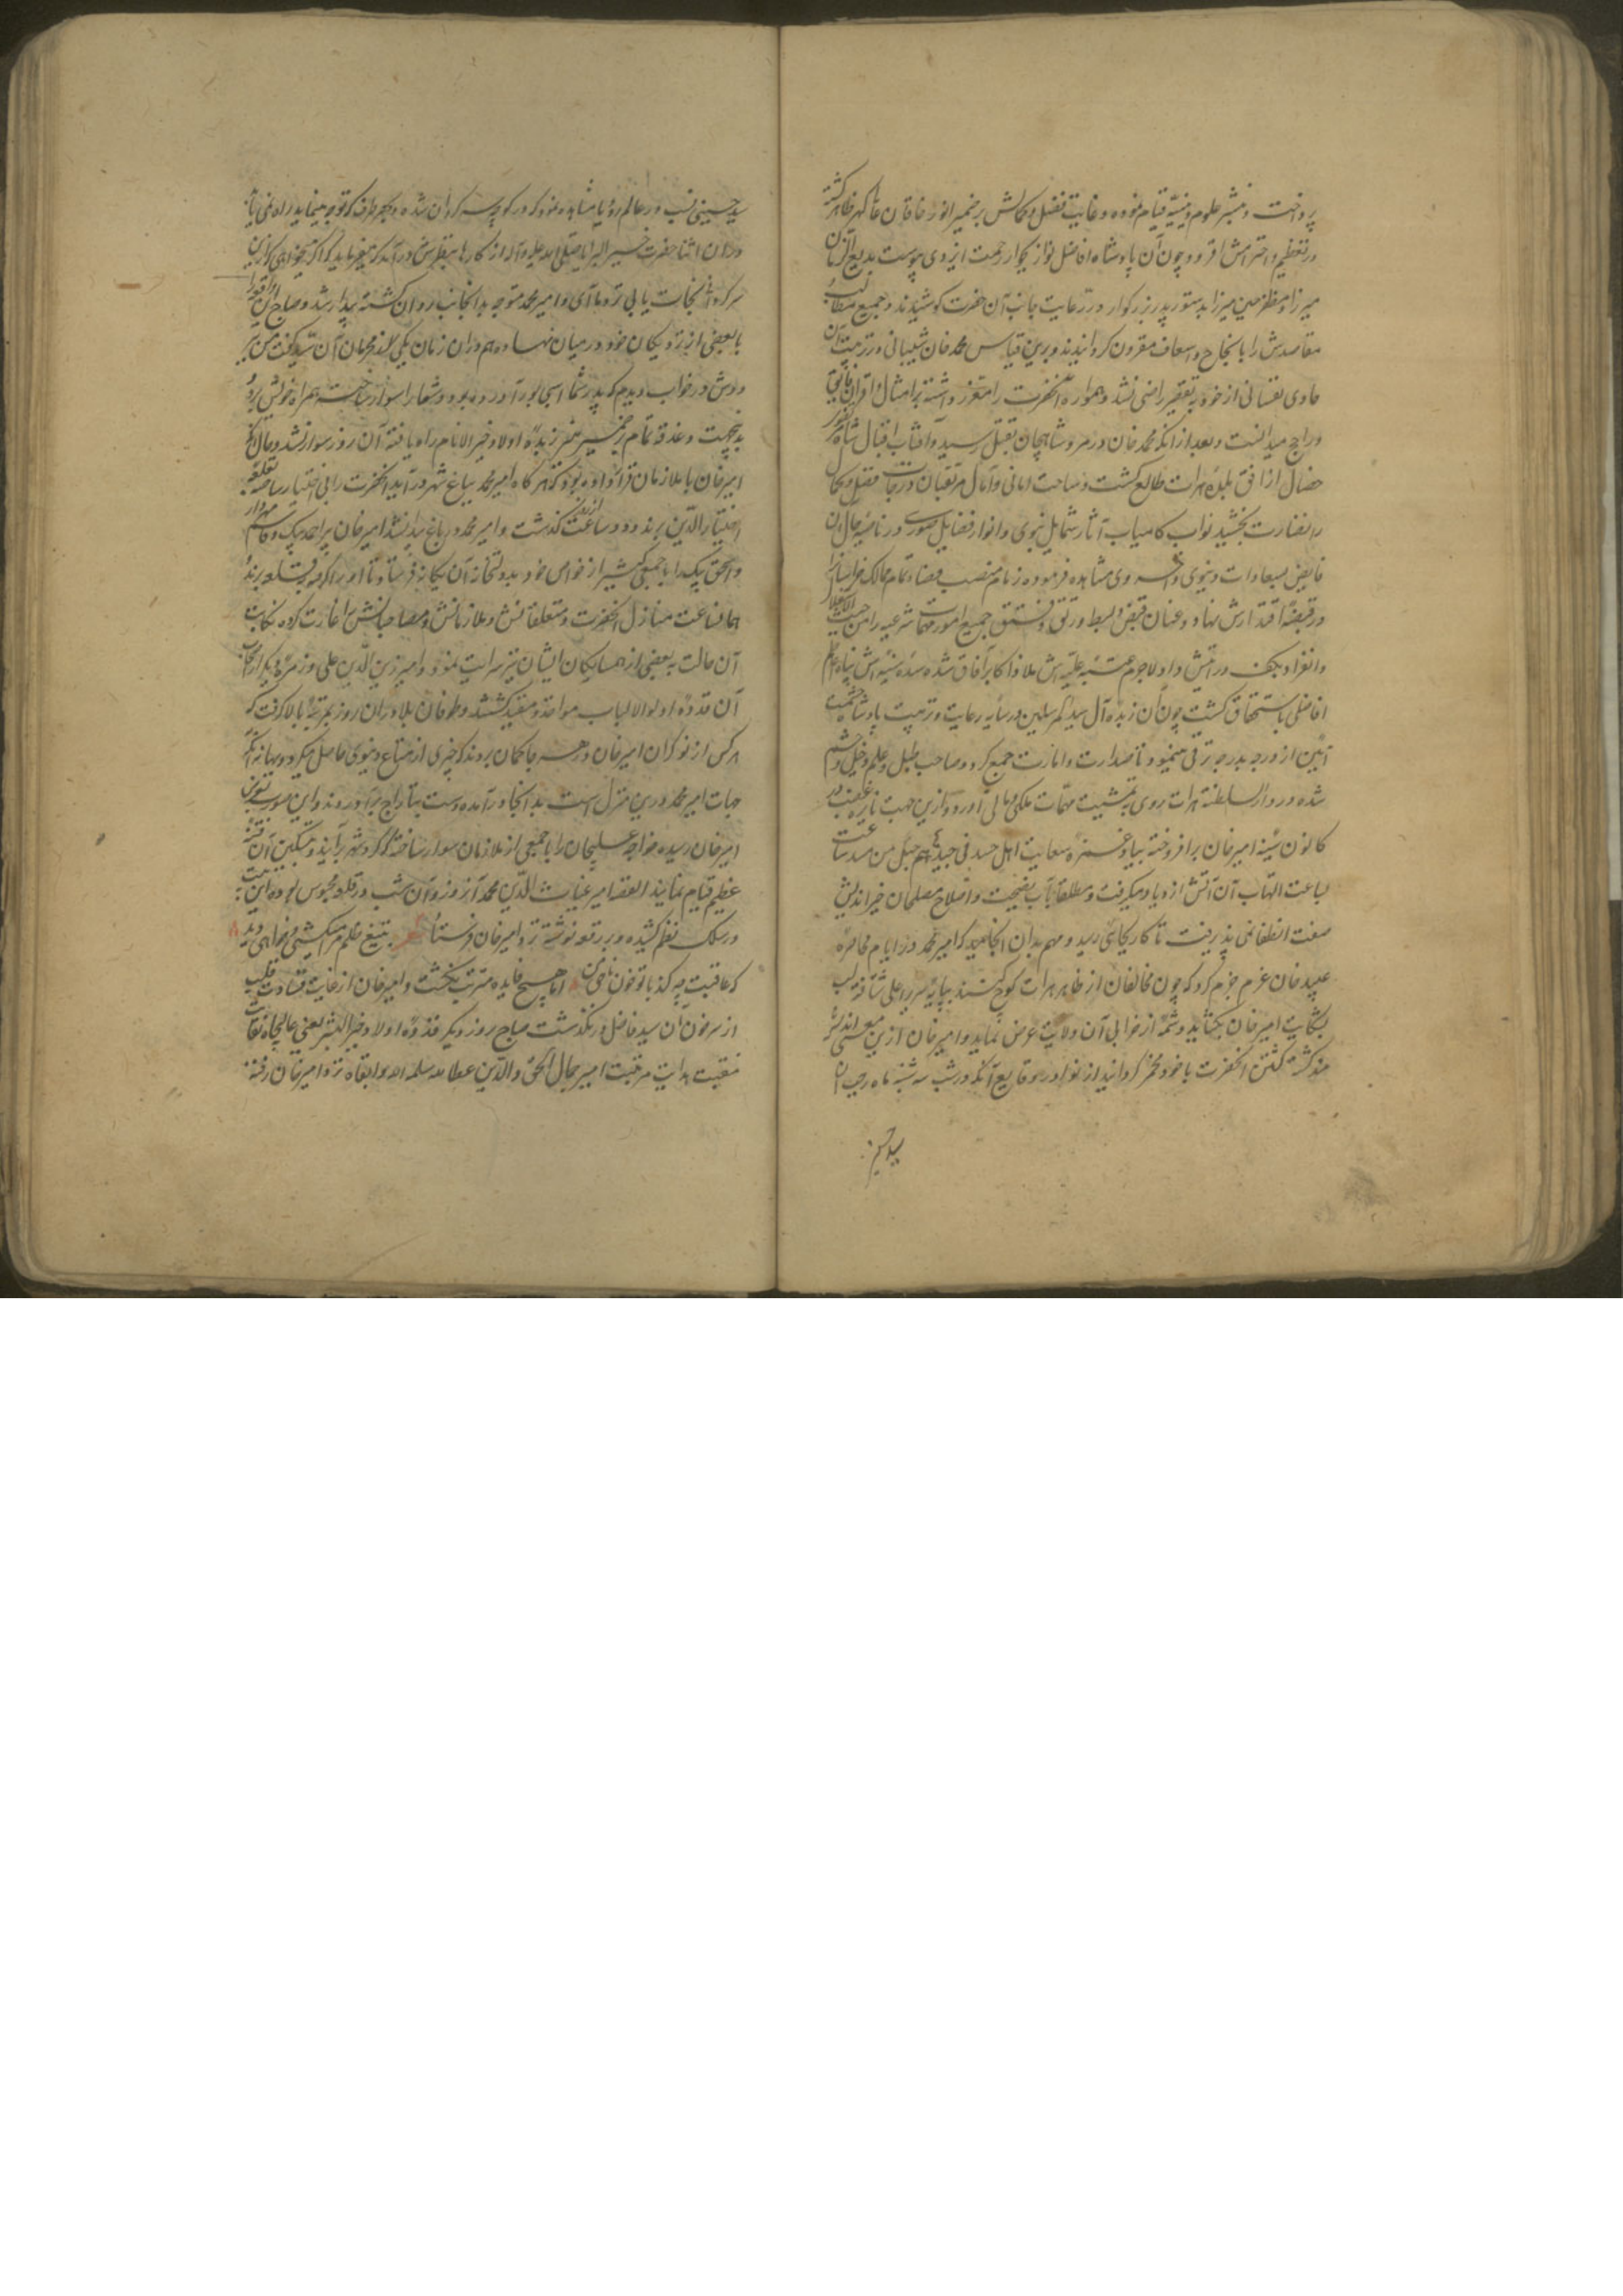 پرداخت و نشر علوم دینیه قیام نموده و غایت فضل و کمالش بر ضمیر انور خاقان عالی گهر ظاهر گشته
در تعظیم و احترامش افزود و چون آن پادشاه افاضل نواز بجوار رحمت ایزدی پیوست بدیع الزمان
میرزا و مظفر حسین میرزا بدستور پدر بزرگوار در رعایت جانب آن حضرت کوشیدند و جمیع مطالب
مقاصدش را بانجاح و اسعاف مقرون گردانیدند و برین قیاس محمد خان شیبانی در تربیت آن
حاوی نفسانی از خود بتقصیر راضی نشد و همواره آنحضرت را معزز داشته بر امثال و اقران فایق
و راجح میدانست و بعد از آنکه محمد خان در مرو شاهیجان بقتل رسید و آفتاب اقبال شاه
خصال از افق بلده هرات طالع گشت و ساحت امانی و آمال مرتقیان درجات فضل و کمال
را نضارت بخشید نواب کامیاب آثار شمایل نبوی و انوار فضایل صوری در ناصیه حال آن
فایض بسعادات دنیوی و اخروی مشاهده فرموده زمام منصب قضاء تمام ممالک خراسان را
در قبضه اقتدارش نهاد و عنان قبض و بسط و رتق و فتق جمیع امور و مهمات شرعیه را من حیث الاستقلال
و الانفراد بکف درایتش داد لاجرم عتبه علیه‌اش ملاذ اکابر آفاق شده سده سنیه‌اش پناه اعاظم
افاضل باستحقاق گشت چون آن زبده آل سید المرسلین در سایه رعایت و تربیت پادشاه حشمت
آیین از درجه بدرجه ترقی مینمود تا صدارت و امارت جمع کرد و صاحب طبل و علم و خیل و حشم
شده در دار السلطنه هرات روی به تمشیت مهمات ملکی و مالی آورد و ازین جهت نایره غضب در
کانون سینه امیر خان برافروخته
لباعت التهاب آن آتش ازدیاد میگرفت و مطلقا بآب نصیحت و اصلاح مصلحان خیر اندیش
صفت انطفا نمی پذیرفت تا کار بجائی رسید و مهم بدان انجامید که امیر محمد در ایام محاصره
عبید خان عزم جزم کرد که چون مخالفان از ظاهر هرات کوچ کنند بپایه سریر اعلی شتافته لب
بشکایت امیر خان بگشاید و شمه از خرابی آن ولایت عرض نماید و امیر خان ازین معنی اندیشه
مند گشته کشتن آنحضرت با خود مخمر گردانید از نوادر وقایع آنکه در شب سه شنبه ماه رجب آن
سید حسینی
سید حسینی نسب در عالم رؤیا مشاهده نمود که در کوچه سرگردان شده و بهر طرف که توجه مینماید راه نمی یابد
در آن اثنا حضرت خیر البرایا صلی الله علیه و آله از کنار بنظرش درآمد که میفرماید که اگر میخواهی که ازین
سرگردانی نجات یابی نزد ما آی و امیر محمد متوجه بدانجانب روان گشته بیدار شد و صباح این واقعه را
با بعضی از نزدیکان خود در میان نهاد و هم در آن زمان یکی از محرمان آن سید گفت من نیز
دوش در خواب دیدم که پدر شما اسبی بور آورده بود و شما را سوار ساخته همراه خویش برد
بدینجهت دغدغه تمام بضمیر منیر زبده اولاد خیر الانام راه یافته آن روز سوار نشد و حال آنکه
امیر خان با ملازمان قرار داده بود که هرگاه امیر محمد بباغ شهر درآید آنحضرت را بی اختیار ساخته بقلعه
اختیار الدین برند و دو ساعت از روز گذشت و امیر محمد در باغ پیدا نشد امیر خان پیر احمد بیک و قاسم مهردار
و اسحق بیک را با جمعی کثیر از خواص خود بدولتخانه آن یگانه فرستاد تا او را گرفته بقلعه بردند
همان ساعت منازل آنحضرت و متعلقانش و ملازمانش و مصاحبانش را غارت کرده نکایت
آن حالت به بعضی از همسایگان ایشان نیز سرایت نمود و امیر زین الدین علی و زمره دیگر از اصحاب
آن قدوه اولوالالباب مواخذ و مقید گشتند و طوفان بلا در آن روز بمرتبه بالا گرفت که
هرکس از نوکران امیر خان در هر جا گمان بردند که چیزی از متاع دنیوی حاصل میگردد ببهانه آنکه
جهات امیر محمد درین منزل است بدانجا درآمده دست بتاراج برآوردند و این صورت بعرض
امیر خان رسیده خواجه سلیمان را با جمعی از ملازمان سوار ساخته که گرد شهر برآیند و تسکین آن فتنه
عظیم قیام نمایند القصه امیر غیاث الدین محمد آن روز و آن شب در قلعه محبوس بوده این بیت
در سلک نظم کشیده و بر رقعه نوشته نزد امیر خان فرستاد شعر به تیغ ظلم مرا میکشی و خواهی دید
که عاقبت چه کند با تو خون ناحق من اما هیچ فایده مترتب نگشت و امیر خان از غایت قساوت قلب
از سر خون آن سید فاضل درنگذشت صباح روز دیگر قدوه اولاد خیر البشر یعنی عالیجاه نقابت
منقبت هدایت مرتبت امیر جمال الحق و الدین عطاء الله سلمه الله و ابقاه نزد امیر خان رفته